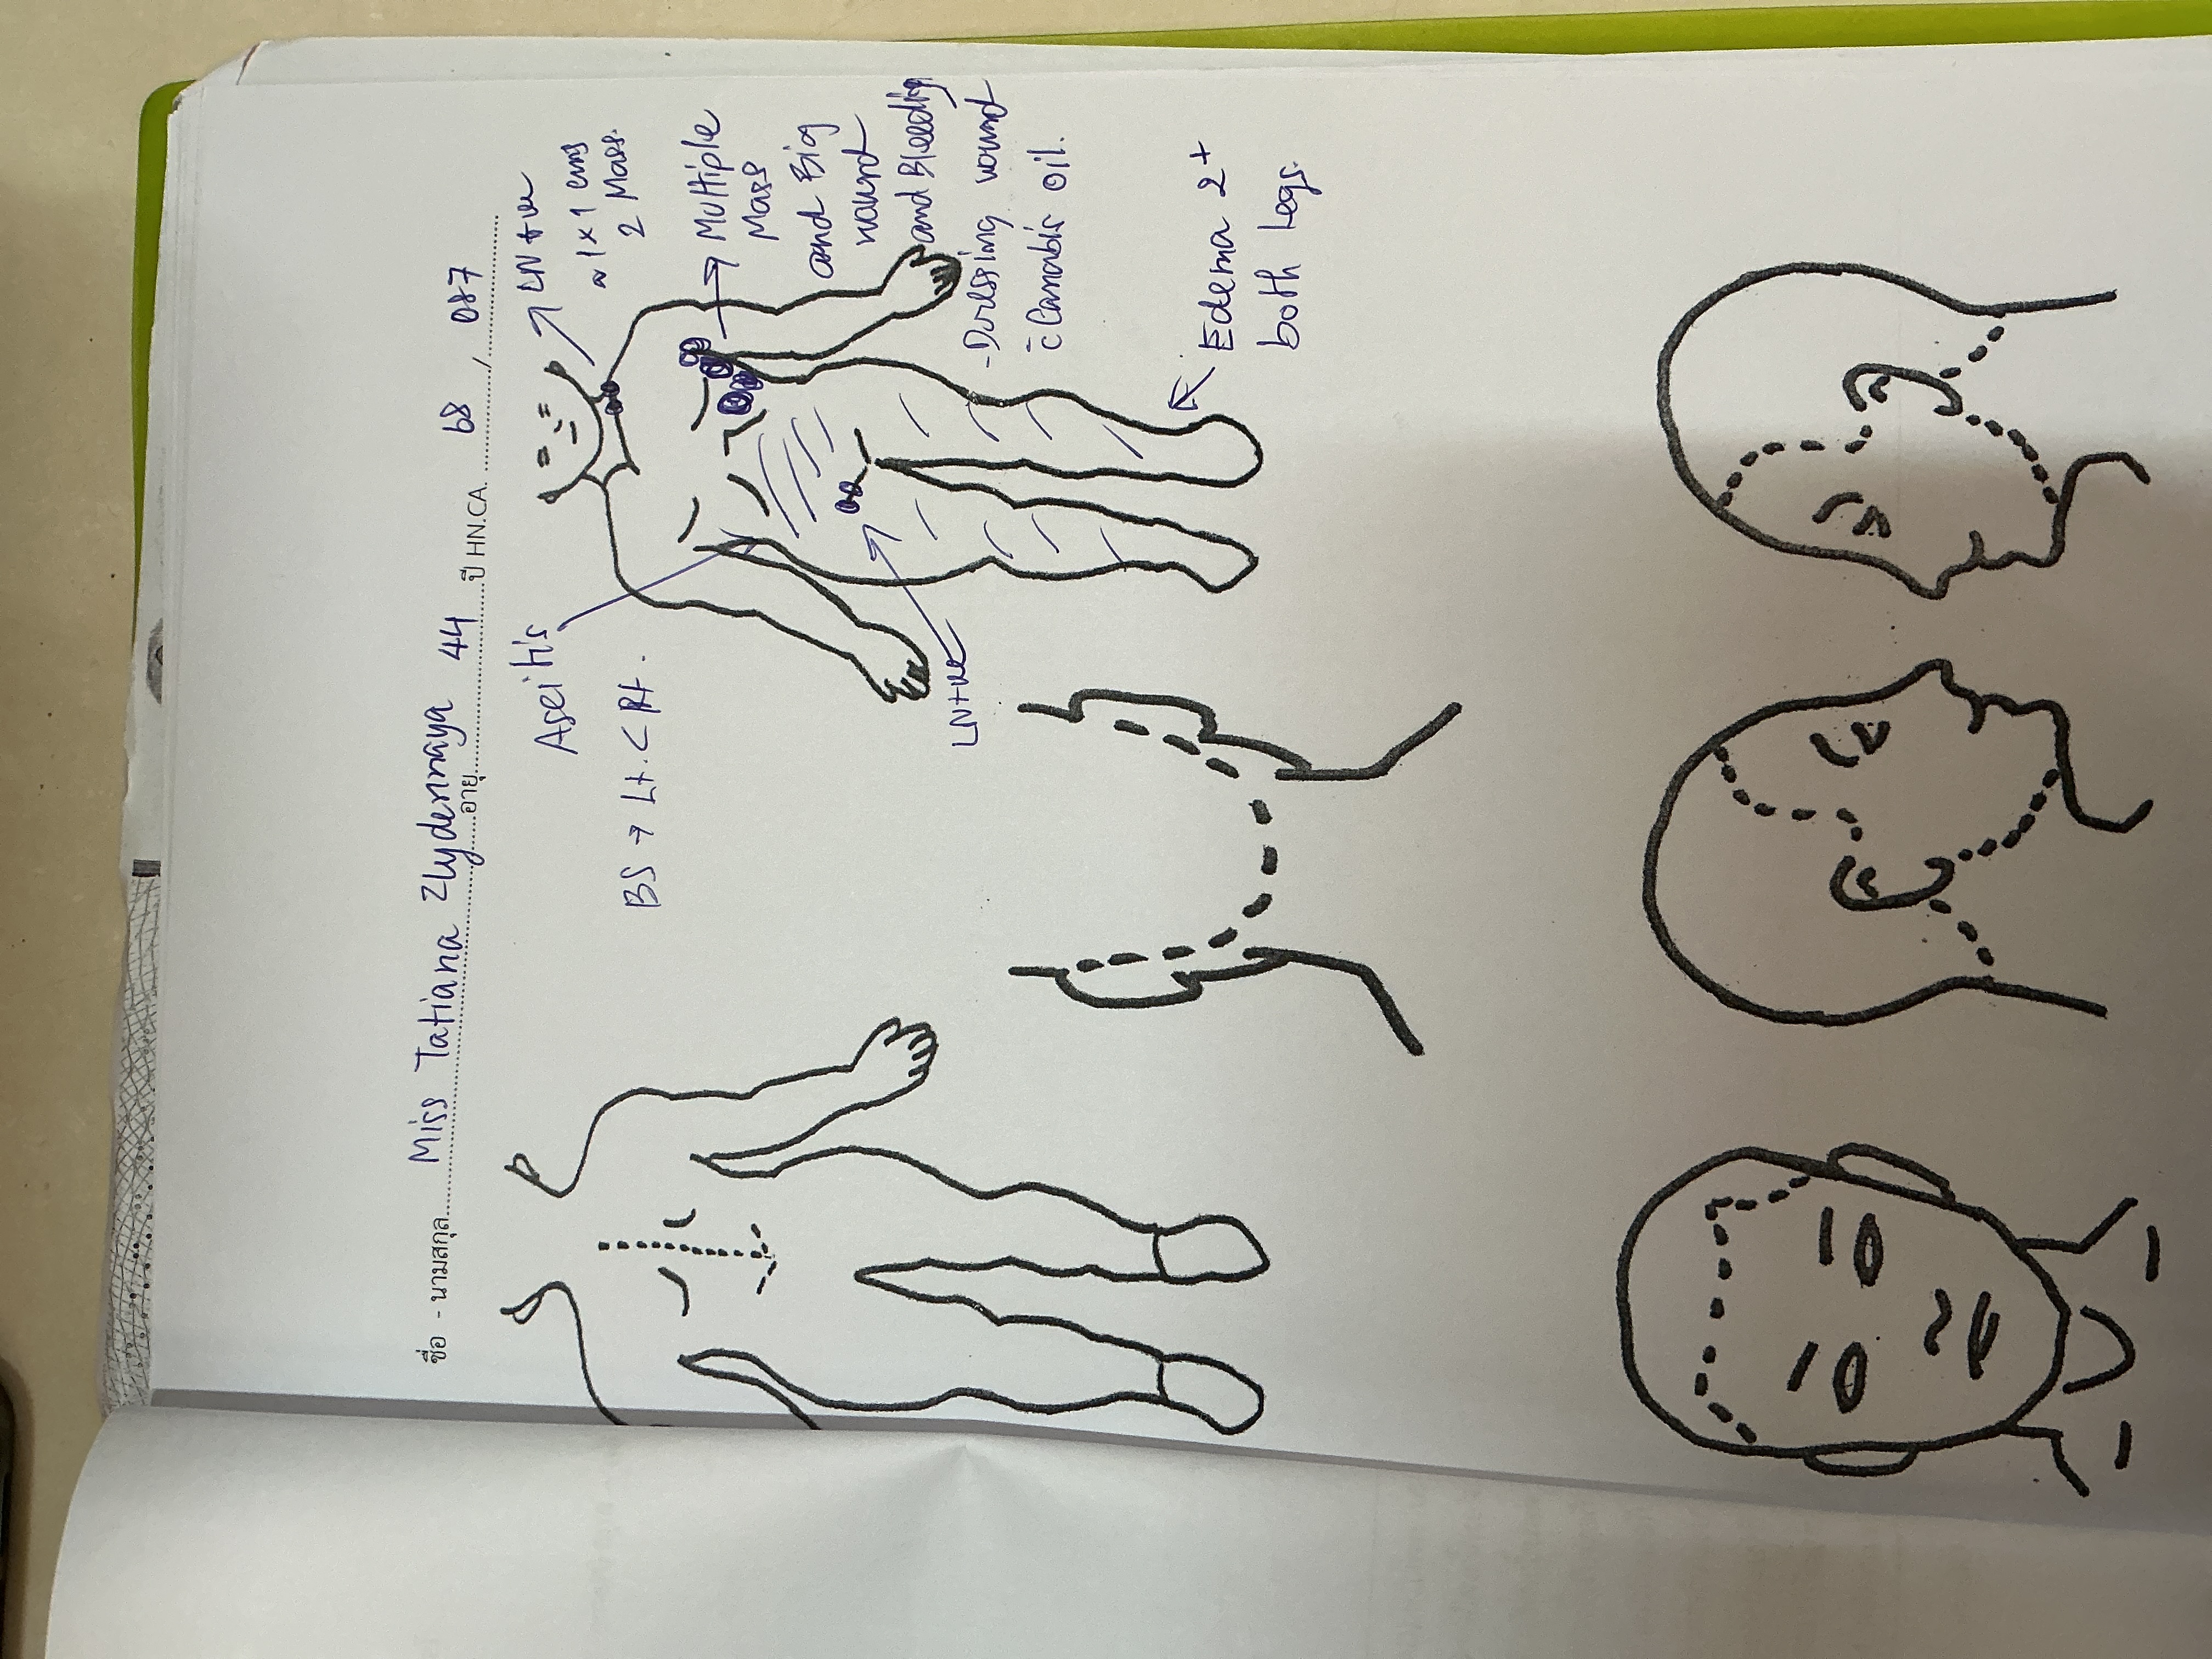 ชื่อ - นามสกุล Miss Tatiana Zlydennaya อายุ 44 ปี HN.CA. 68 / 087
LN +ve
≈ 1x1 cms
2 Mass.
Ascitis
BS → Lt. < Rt.
→ Multiple
Mass
and Big
wound
and Bleeding
- Dressing wound
c̄ Cannabis oil.
LN+ve
Edema 2+
both legs.